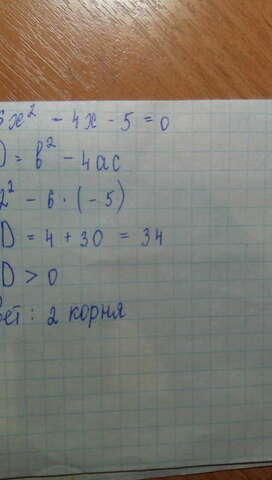 6x² - 4x - 5 = 0
D = b² - 4ac
2² - 6 · (-5)
D = 4 + 30 = 34
D > 0
вет : 2 корня